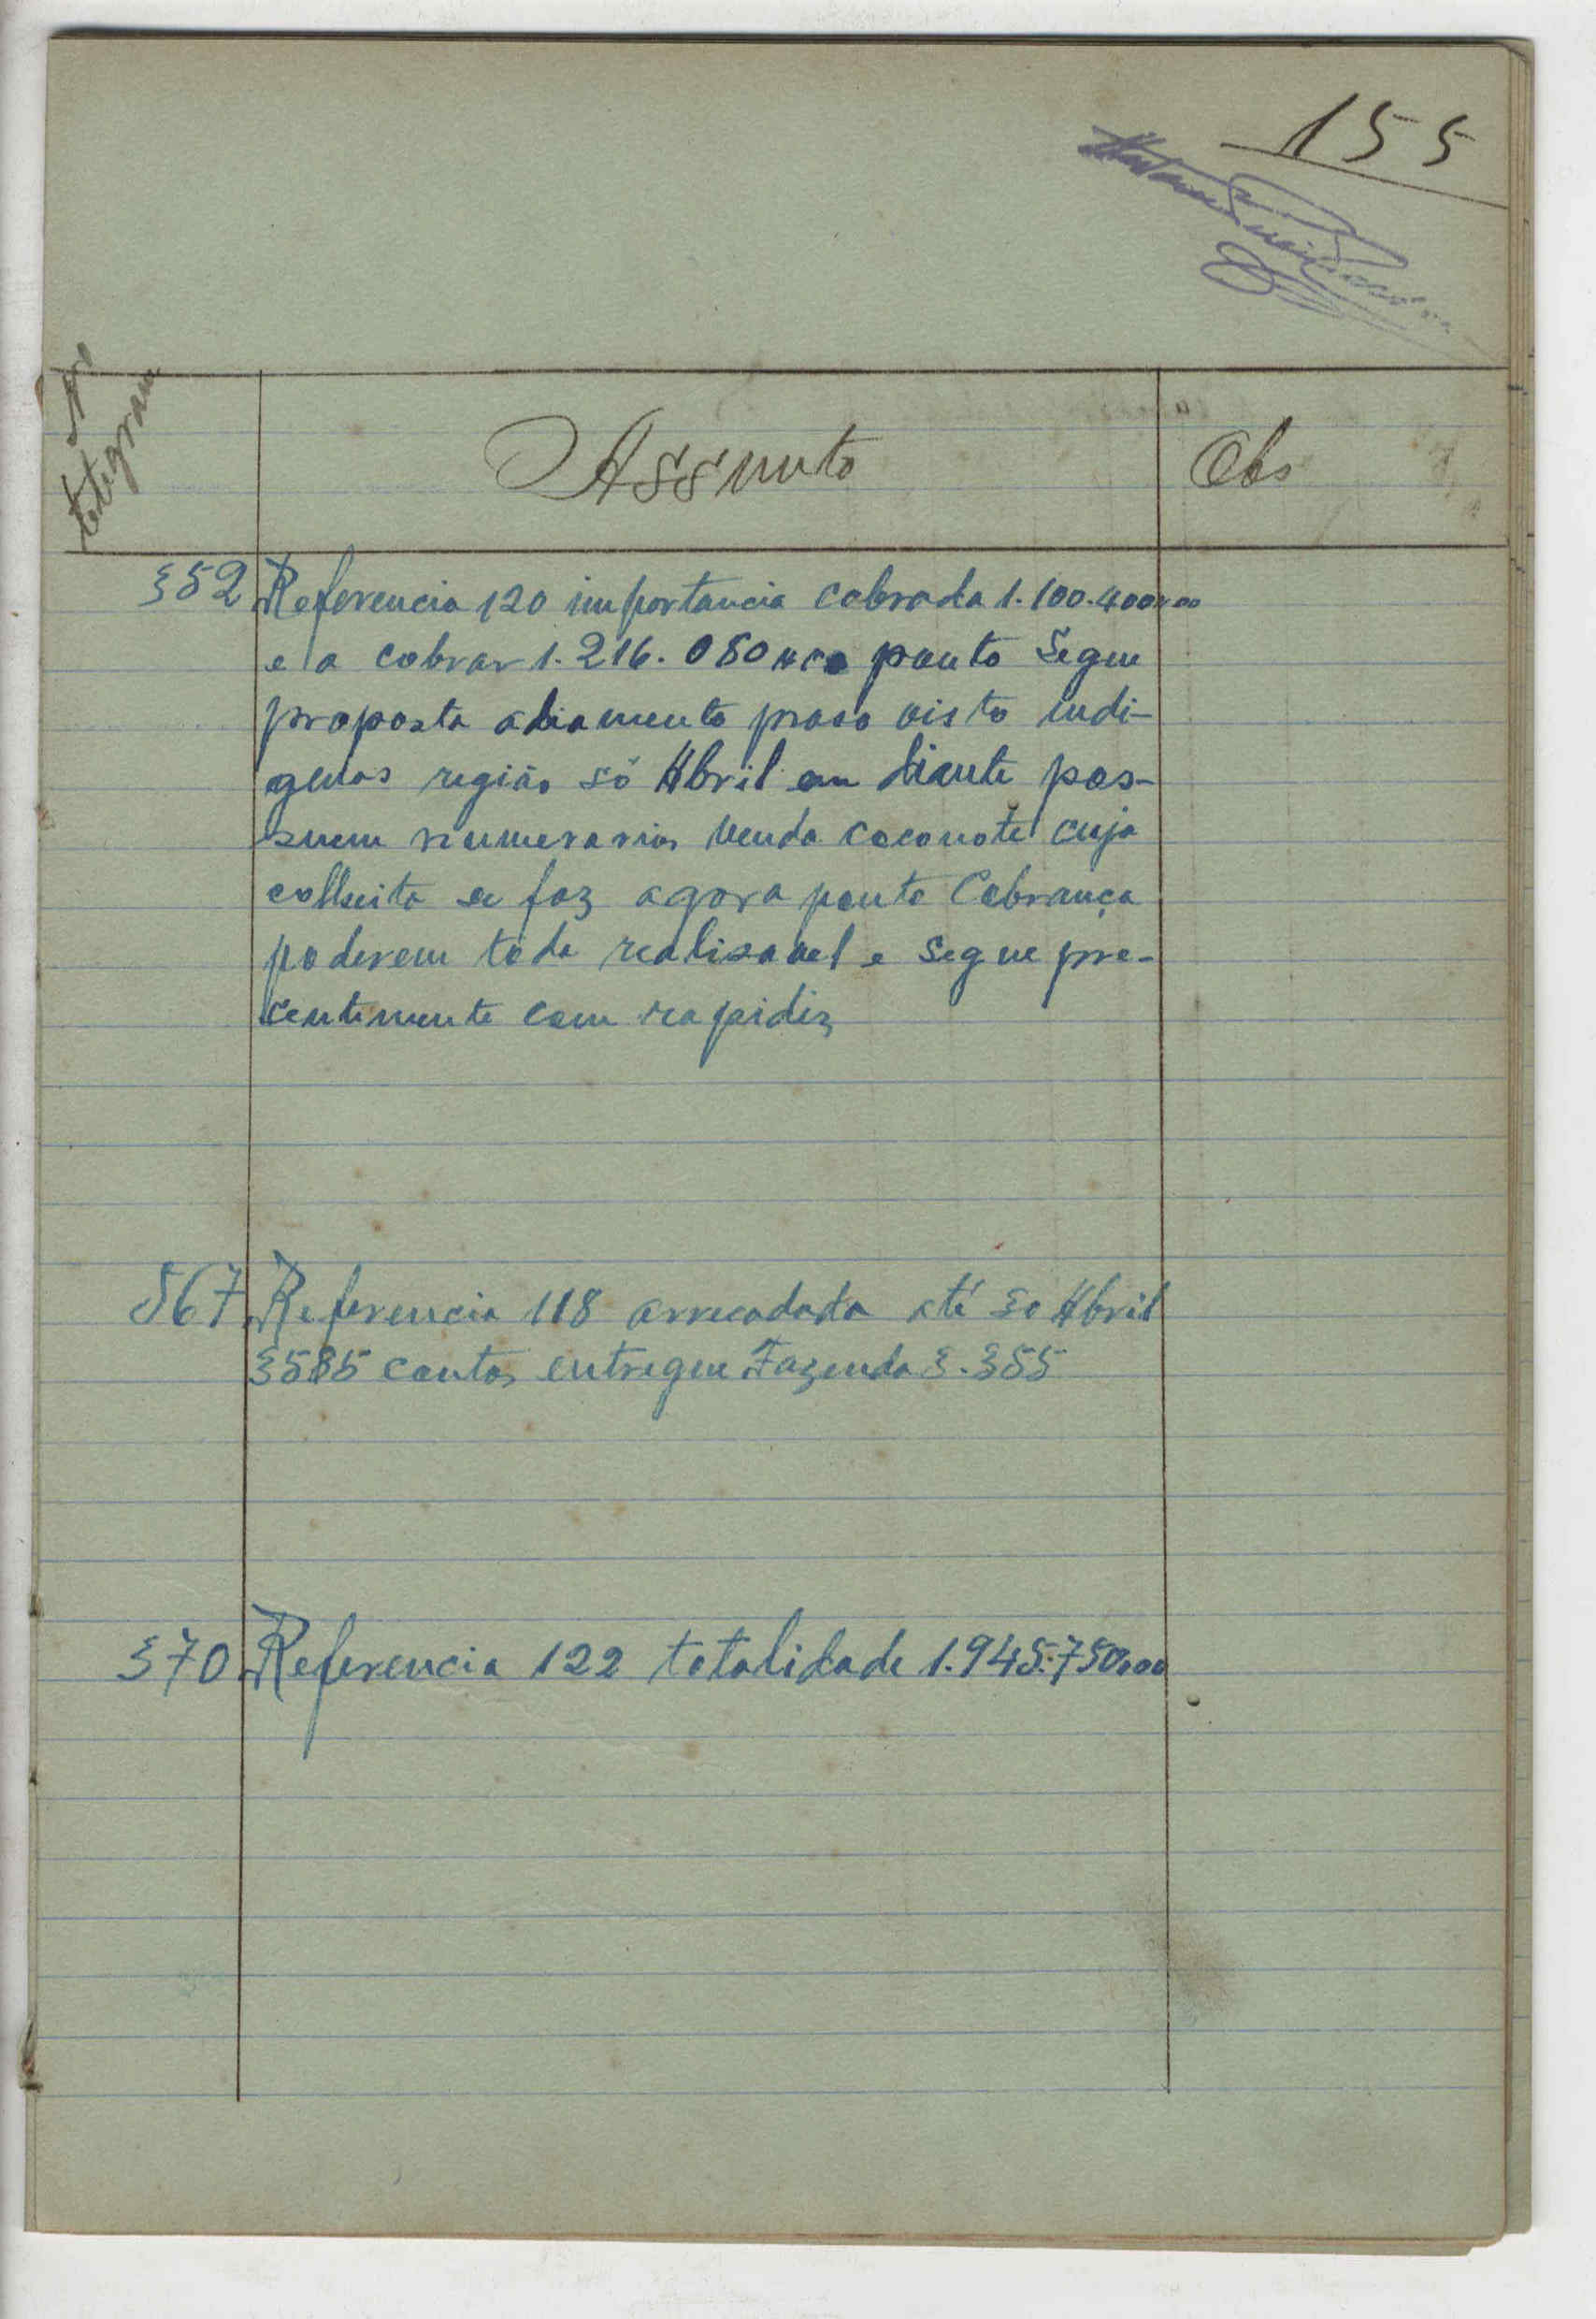 155
telegram
Assunto
Obs
352 Referencia 120 importancia cobrada 1.100.400$00
e a cobrar 1.216.080$00 ponto Segue
proposta adiamento praso visto indi-
genas região só Abril em diante pos-
suem numerario venda coconote cuja
colheita se faz agora ponto Cobrança
poderem toda realisavel e segue
com rapidez
367 Referencia 118 arrecadada até 30 Abril
3585 contos entregue Fazenda 3.355
370 Referencia 122 totalidade 1.945.750$00